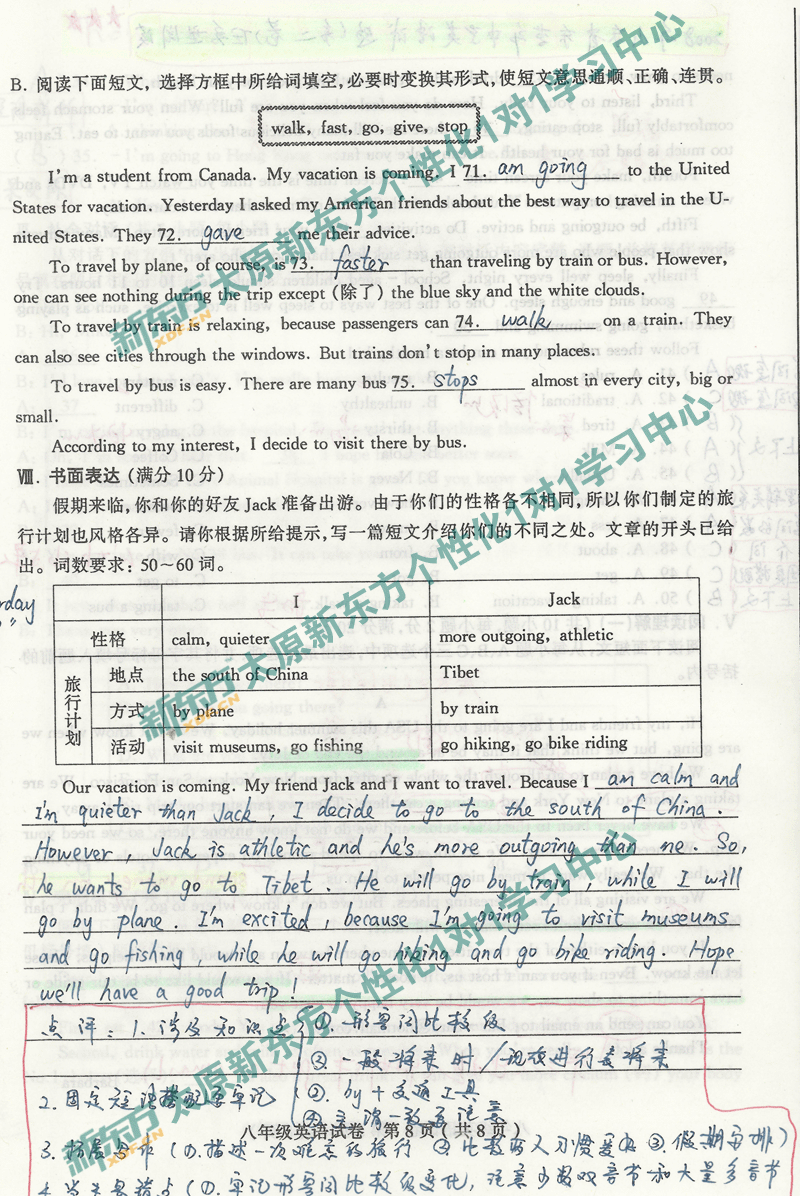 B. 阅读下面短文，选择方框中所给词填空，必要时变换其形式，使短文意思通顺、正确、连贯。
walk, fast, go, give, stop
I'm a student from Canada. My vacation is coming. I 71. am going to the United
States for vacation. Yesterday I asked my American friends about the best way to travel in the U-
nited States. They 72. gave me their advice.
To travel by plane, of course, is 73. faster than traveling by train or bus. However,
one can see nothing during the trip except (除了) the blue sky and the white clouds.
To travel by train is relaxing, because passengers can 74. walk on a train. They
can also see cities through the windows. But trains don't stop in many places.
To travel by bus is easy. There are many bus 75. stops almost in every city, big or
small.
According to my interest, I decide to visit there by bus.
Ⅷ. 书面表达 (满分 10 分)
假期来临,你和你的好友 Jack 准备出游。由于你们的性格各不相同,所以你们制定的旅
行计划也风格各异。请你根据所给提示,写一篇短文介绍你们的不同之处。文章的开头已给
出。词数要求: 50~60 词。
I Jack
性格 calm, quieter more outgoing, athletic
旅行计划 地点 the south of China Tibet
方式 by plane by train
活动 visit museums, go fishing go hiking, go bike riding
Our vacation is coming. My friend Jack and I want to travel. Because I am calm and
I'm quieter than Jack, I decide to go to the south of China.
However, Jack is athletic and he's more outgoing than me. So,
he wants to go to Tibet. He will go by train, while I will
go by plane. I'm excited, because I'm going to visit museums
and go fishing while he will go hiking and go bike riding. Hope
we'll have a good trip!
点评: 1. 涉及知识点: ①. 形容词比较级
②. 一般将来时/现在进行表将来
2. 固定短语搭配要牢记 ②. by + 交通工具
八年级英语试卷 第 8 页 (共 8 页)
3. 拓展写作 (①. 描述一次难忘的旅行 ② 比较两人习惯爱好 ③. 假期安排)
新东方 太原新东方个性化1对1学习中心
XDF.CN
新东方 太原新东方个性化1对1学习中心
XDF.CN
新东方 太原新东方个性化1对1学习中心
XDF.CN